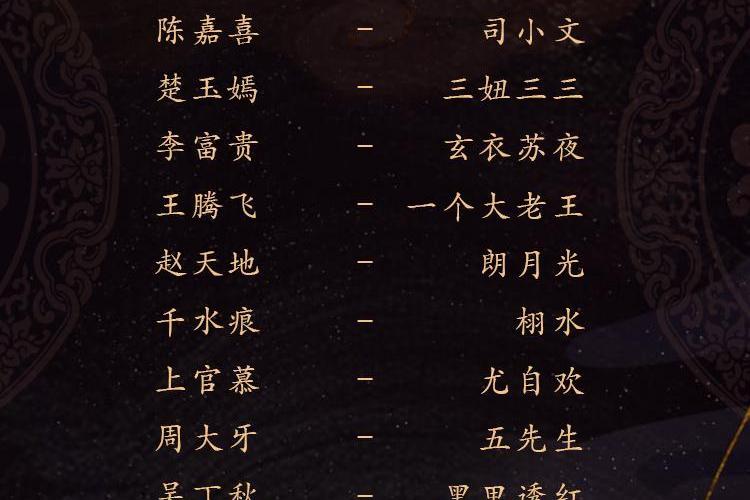 陈嘉喜 - 司小文
楚玉嫣 - 三妞三三
李富贵 - 玄衣苏夜
王腾飞 - 一个大老王
赵天地 - 朗月光
千水痕 - 栩水
上官慕 - 尤自欢
周大牙 - 五先生
吴丁秋 - 黑里透红